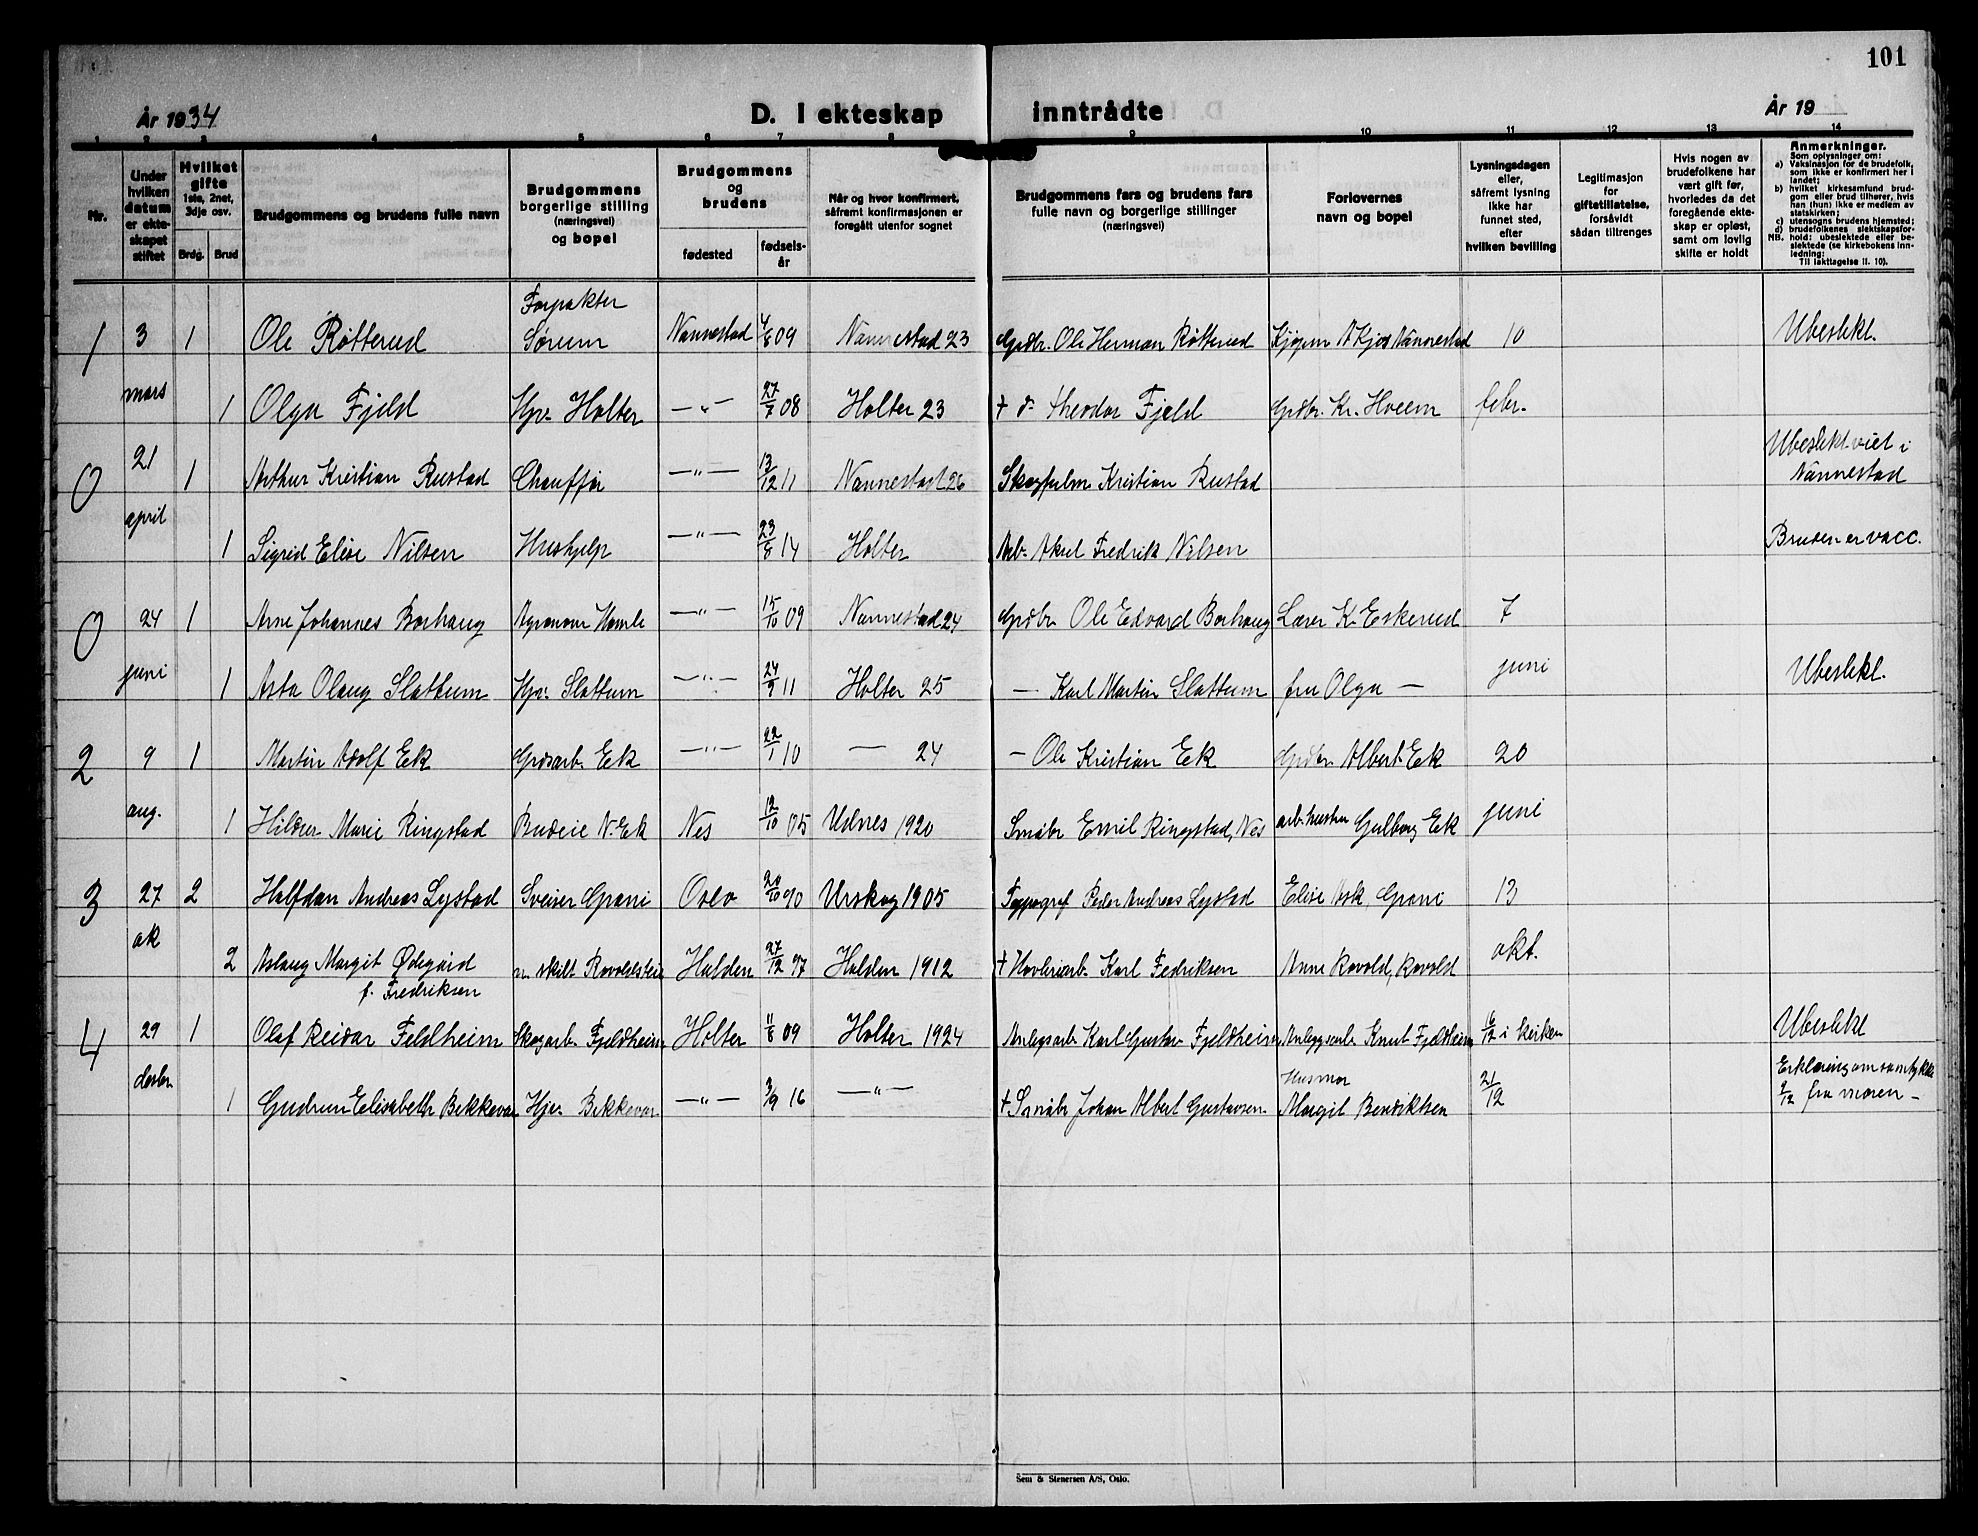 101
År 1934
D. I ekteskap inntrådte
År 19
1 2 3 4 5 6 7 8 9 10 11 12 13 14
Nr.
Under hvilken datum er ekteskapet stiftet
Hvilket gifte 1ste, 2net, 3dje osv.
Brdg. Brud
Brudgommens og brudens fulle navn
Brudgommens borgerlige stilling (næringsvei) og bopel
Brudgommens og brudens
fødested
fødselsår
Når og hvor konfirmert, såfremt konfirmasjonen er foregått utenfor sognet
Brudgommens fars og brudens fars fulle navn og borgerlige stillinger (næringsvei)
Forlovernes navn og bopel
Lysningsdagen eller, såfremt lysning ikke har funnet sted, efter hvilken bevilling
Legitimasjon for giftetillatelse, forsåvidt sådan tiltrenges
Hvis nogen av brudefolkene har vært gift før, hvorledes da det foregående ekteskap er opløst, samt om lovlig skifte er holdt
Anmerkninger.
Som oplysninger om:
a) Vaksinasjon for de brudefolk, som ikke er konfirmert her i landet;
b) hvilket kirkesamfund brudgom eller brud tilhører, hvis han (hun) ikke er medlem av statskirken;
c) utensogns brudens hjemsted;
d) brudefolkenes slektskapsforhold: ubeslektede eller beslektede (se kirkebokens innledning:
NB. Til iakttagelse II. 10).
1 3 1 Ole Røtterud Forpakter Sørum Nannestad 4/8 09 Nannestad 23 Grdbr. Ole Herman Røtterud Kjøpm A Kjos Nannestad 10 Ubeslekt.
mars 1 Olga Fjeld Hpv. Holter —"— 27/7 08 Holter 23 † do Theodor Fjeld Grdbr. Kr. Hveem febr.
0 21 1 Arthur Kristian Rustad Chauffør —"— 13/12 11 Nannestad 26 Kristian Rustad Ubeslekt viet i Nannestad
april 1 Sigrid Elise Nilsen Hushjelp —"— 23/8 14 Holter Arb. Aksel Fredrik Nilsen Bruden er vacc.
0 24 1 Arne Johannes Borhaug Agronom Homle —"— 15/10 09 Nannestad 24 Grdbr Ole Edvard Borhaug Lærer K. Eskerud 7
juni 1 Asta Olaug Slattum Hpv. Slattum —"— 24/9 11 Holter 25 — Karl Martin Slattum fru Olga — juni Ubeslekt.
2 9 1 Martin Adolf Ek Grdsarb. Ek —"— 22/1 10 — 24 — Ole Kristian Ek Albert Ek 20
aug. 1 Marie Ringstad Budeie N. Ek Nes 12/10 05 Udnes 1920 Småbr Emil Ringstad, Nes arb. hustru Gulborg Ek juni
3 27 2 Halfdan Andreas Lystad Sveiser Grani Oslo 20/10 90 Urskog 1905 Typograf Peder Andreas Lystad Elise Ask, Grani 13
ok 2 Aslaug Margit Ødegård f. Fredriksen skilt Halden 27/12 97 Halden 1912 † Høvleriarb. Karl Fedriksen Anne Rovold, Rovold okt.
4 29 1 Olaf Reidar Feldheim Skogarb. Fjeldheim Holter 11/8 09 Holter 1924 Anlegsarb Karl Gustav Fjeldheim Anleggsarb. Knut Fjeldheim 16/12 i kirken Ubeslekt
desbr. 1 Gudrun Elisabeth Bekkevar Hje. Bekkevar —"— 3/9 16 —"— † Småbr Johan Albert Gustavsen Husmor Margit Bendiktsen 21/12 Erklæring om samtykke 2/12 fra moren —
Sem & Stenersen A/S, Oslo.